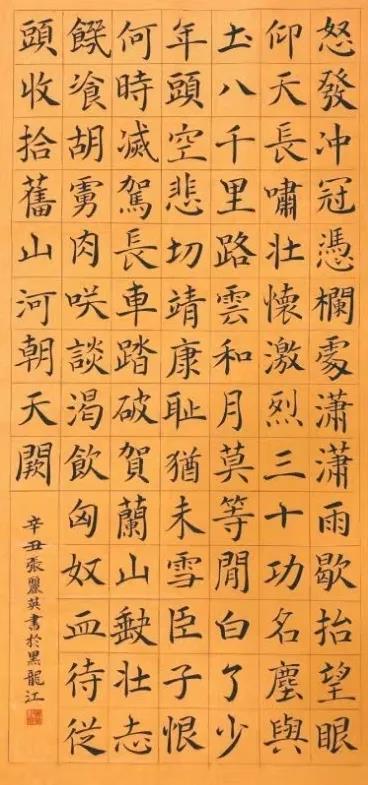 怒發冲冠憑欄處瀟瀟雨歇抬望眼
仰天長嘯壯懷激烈三十功名塵與
土八千里路雲和月莫等閒白了少
年頭空悲切靖康耻猶未雪臣子恨
何時滅駕長車踏破賀蘭山缺壯志
饑飡胡虜肉咲談渴飲匈奴血待從
頭收拾舊山河朝天闕
辛丑張麗英書於黑龍江